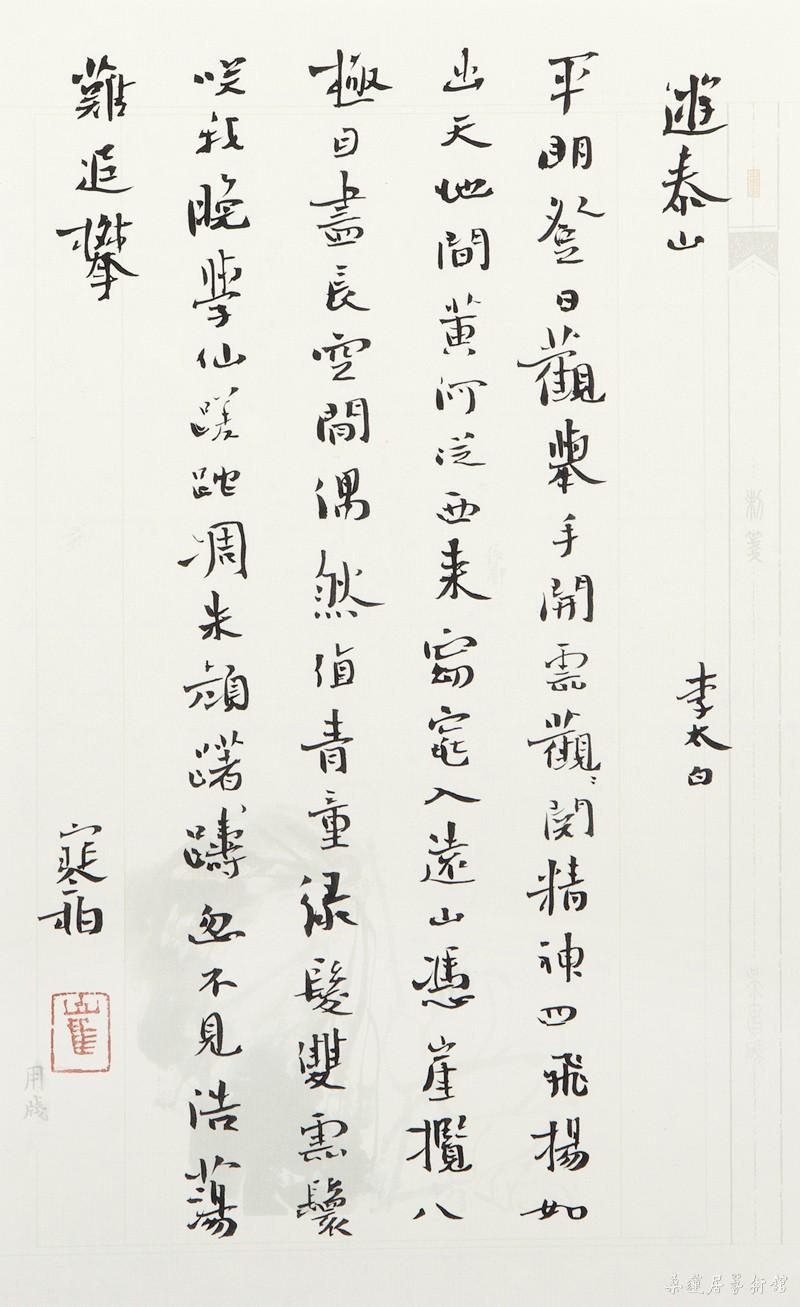 遊泰山
李太白
平明登日觀舉手開雲觀〻関精神四飛揚如
出天地間黃河從西來窈窕入遠山憑崖攬八
極目盡長空間偶然值青童綠髮雙雲鬟
咲我晚學仙蹉跎凋朱顏躇躊忽不見浩蕩
難追攀
崔
居藝術館